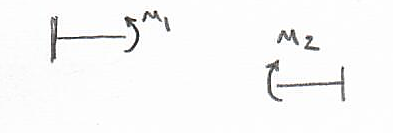 M1
M2